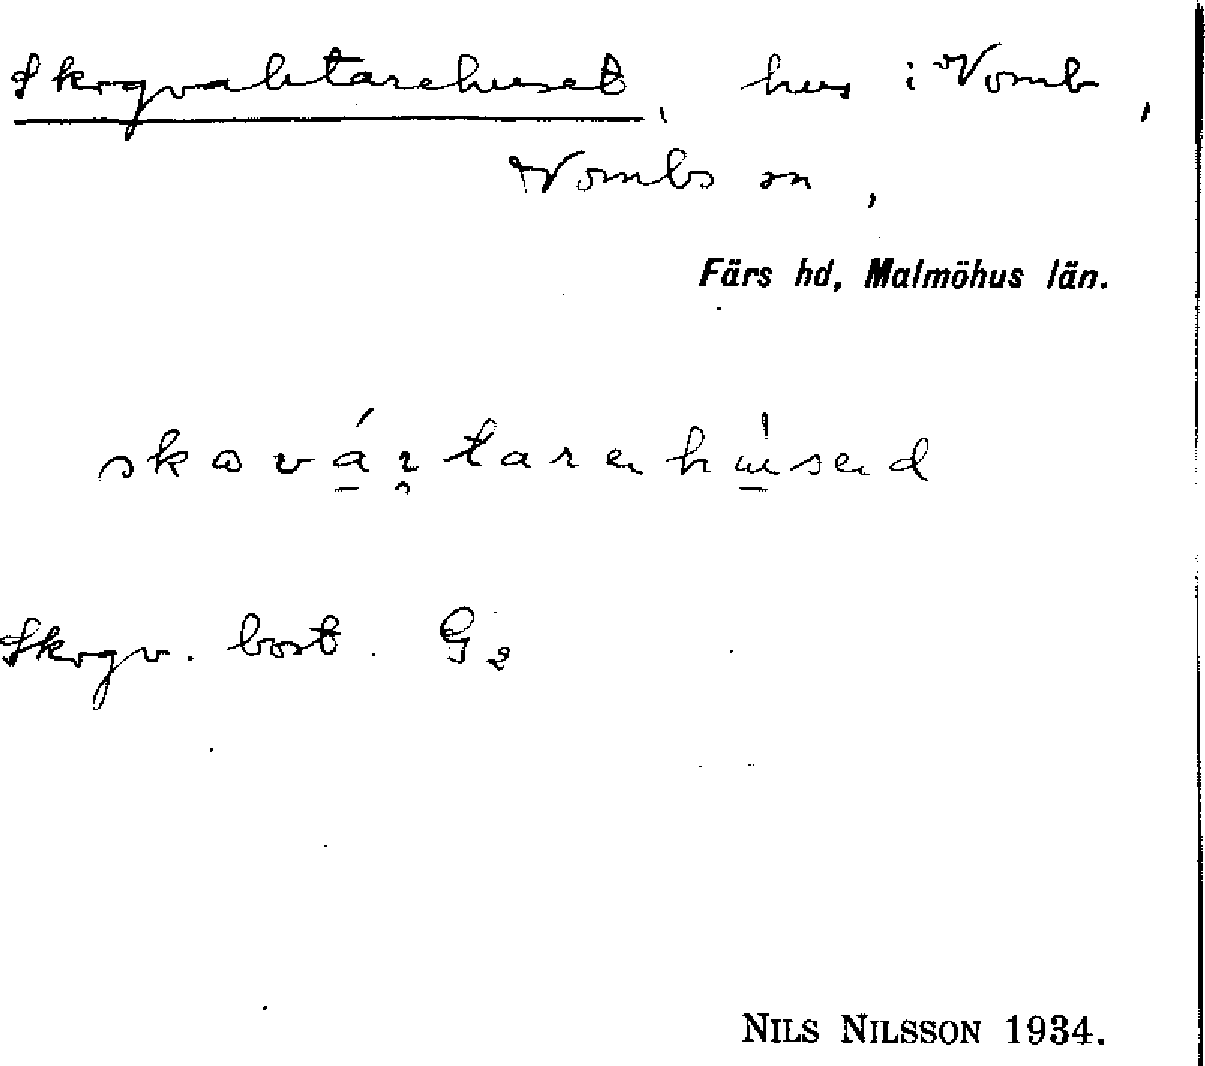 Skogvaktarehuset, hus i Vomb,
Vombs sn,
Färs hd, Malmöhus län.
Skogv. bost. G2
NILS NILSSON 1934.